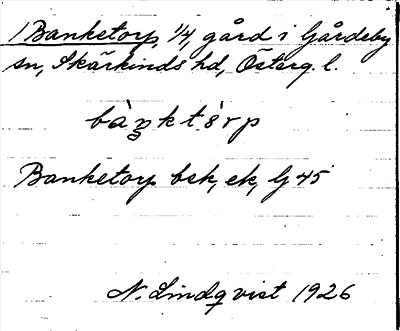 1 Banketorp, 1/4, gård i Gårdeby
sn, Skärkinds hd, Österg. l.
bàŋktòrp
Banketorp bsk, ek, G 45
N. Lindqvist 1926